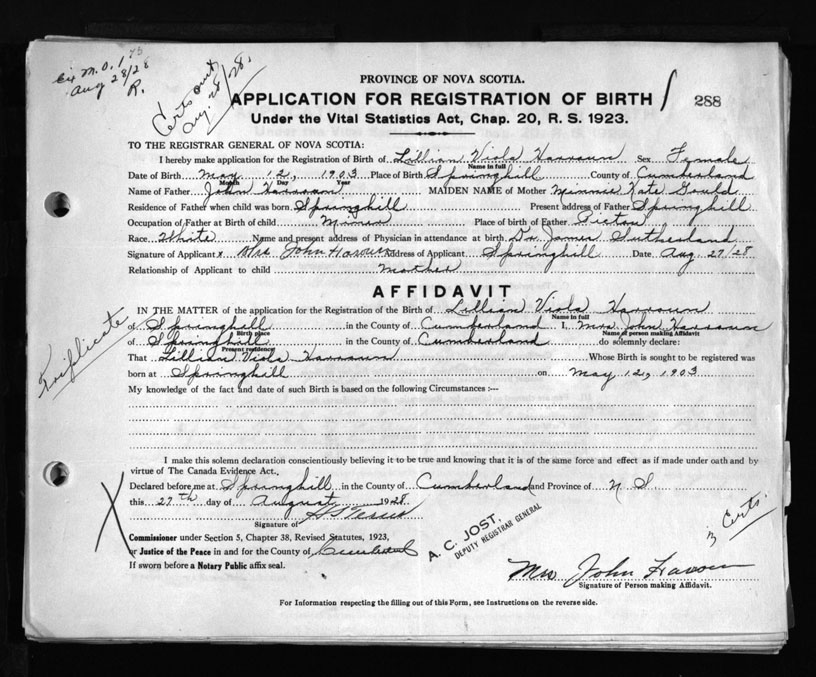 Aug 28/28
R.
Certs out
Aug. 28/28.
PROVINCE OF NOVA SCOTIA.
APPLICATION FOR REGISTRATION OF BIRTH
288
Under the Vital Statistics Act, Chap. 20, R. S. 1923.
TO THE REGISTRAR GENERAL OF NOVA SCOTIA:
I hereby make application for the Registration of Birth of Lillian Viola Sex Female
Name in full
Date of Birth May 12, 1903 Place of Birth Springhill County of Cumberland
Month Day Year
Name of Father John MAIDEN NAME of Mother Minnie Kate Gould
Residence of Father when child was born Springhill Present address of Father Springhill
Occupation of Father at Birth of child Miner Place of birth of Father Pictou
Race White Name and present address of Physician in attendance at birth Dr. James Sutherland
Signature of Applicant x Mrs John Address of Applicant Springhill Date Aug 27/28
Relationship of Applicant to child Mother
AFFIDAVIT
IN THE MATTER of the application for the Registration of the Birth of Lillian Viola
Name in full
of Springhill in the County of Cumberland I, Mrs John
Birth place Name of person making Affidavit
of Springhill in the County of Cumberland do solemnly declare:
Present residence
That Lillian Viola Whose Birth is sought to be registered was
born at Springhill on May 12, 1903
Triplicate
My knowledge of the fact and date of such Birth is based on the following Circumstances :—
I make this solemn declaration conscientiously believing it to be true and knowing that it is of the same force and effect as if made under oath and by
virtue of The Canada Evidence Act.
Declared before me at Springhill in the County of Cumberland and Province of N S.
this 27th day of August 1928.
Signature of
X
Commissioner under Section 5, Chapter 38, Revised Statutes, 1923,
or Justice of the Peace in and for the County of Cumberland
If sworn before a Notary Public affix seal.
A. C. JOST,
DEPUTY REGISTRAR GENERAL
3 Certs.
Mrs John
Signature of Person making Affidavit.
For Information respecting the filling out of this Form, see Instructions on the reverse side.